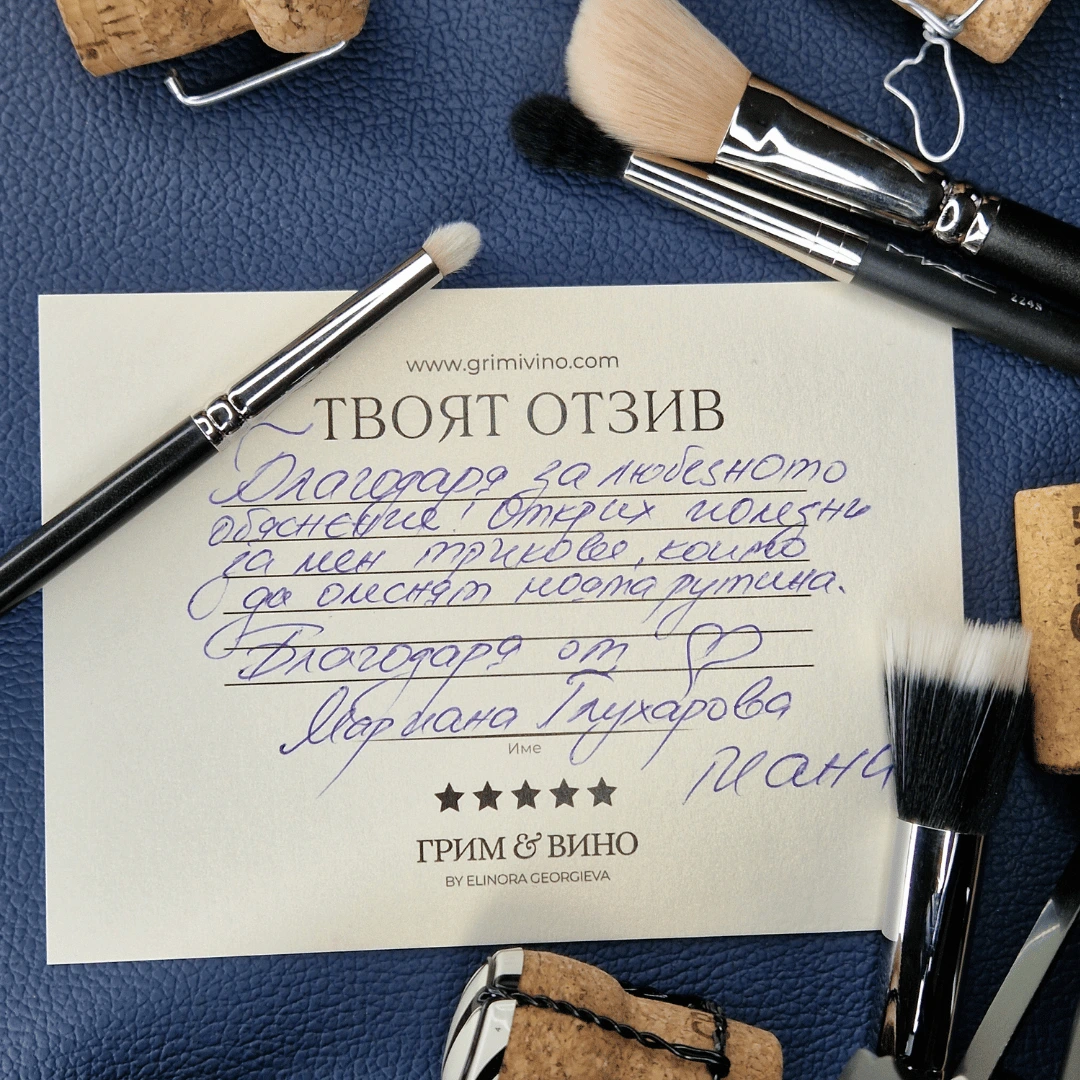 www.grimivino.com
ТВОЯТ ОТЗИВ
Благодаря за любезното
обяснение! Открих полезни
за мен трикове, които
да олеснят моята рутина.
Благодаря от
Мариана Глухарова
Име
ГРИМ & ВИНО
BY ELINORA GEORGIEVA
MAC
224S